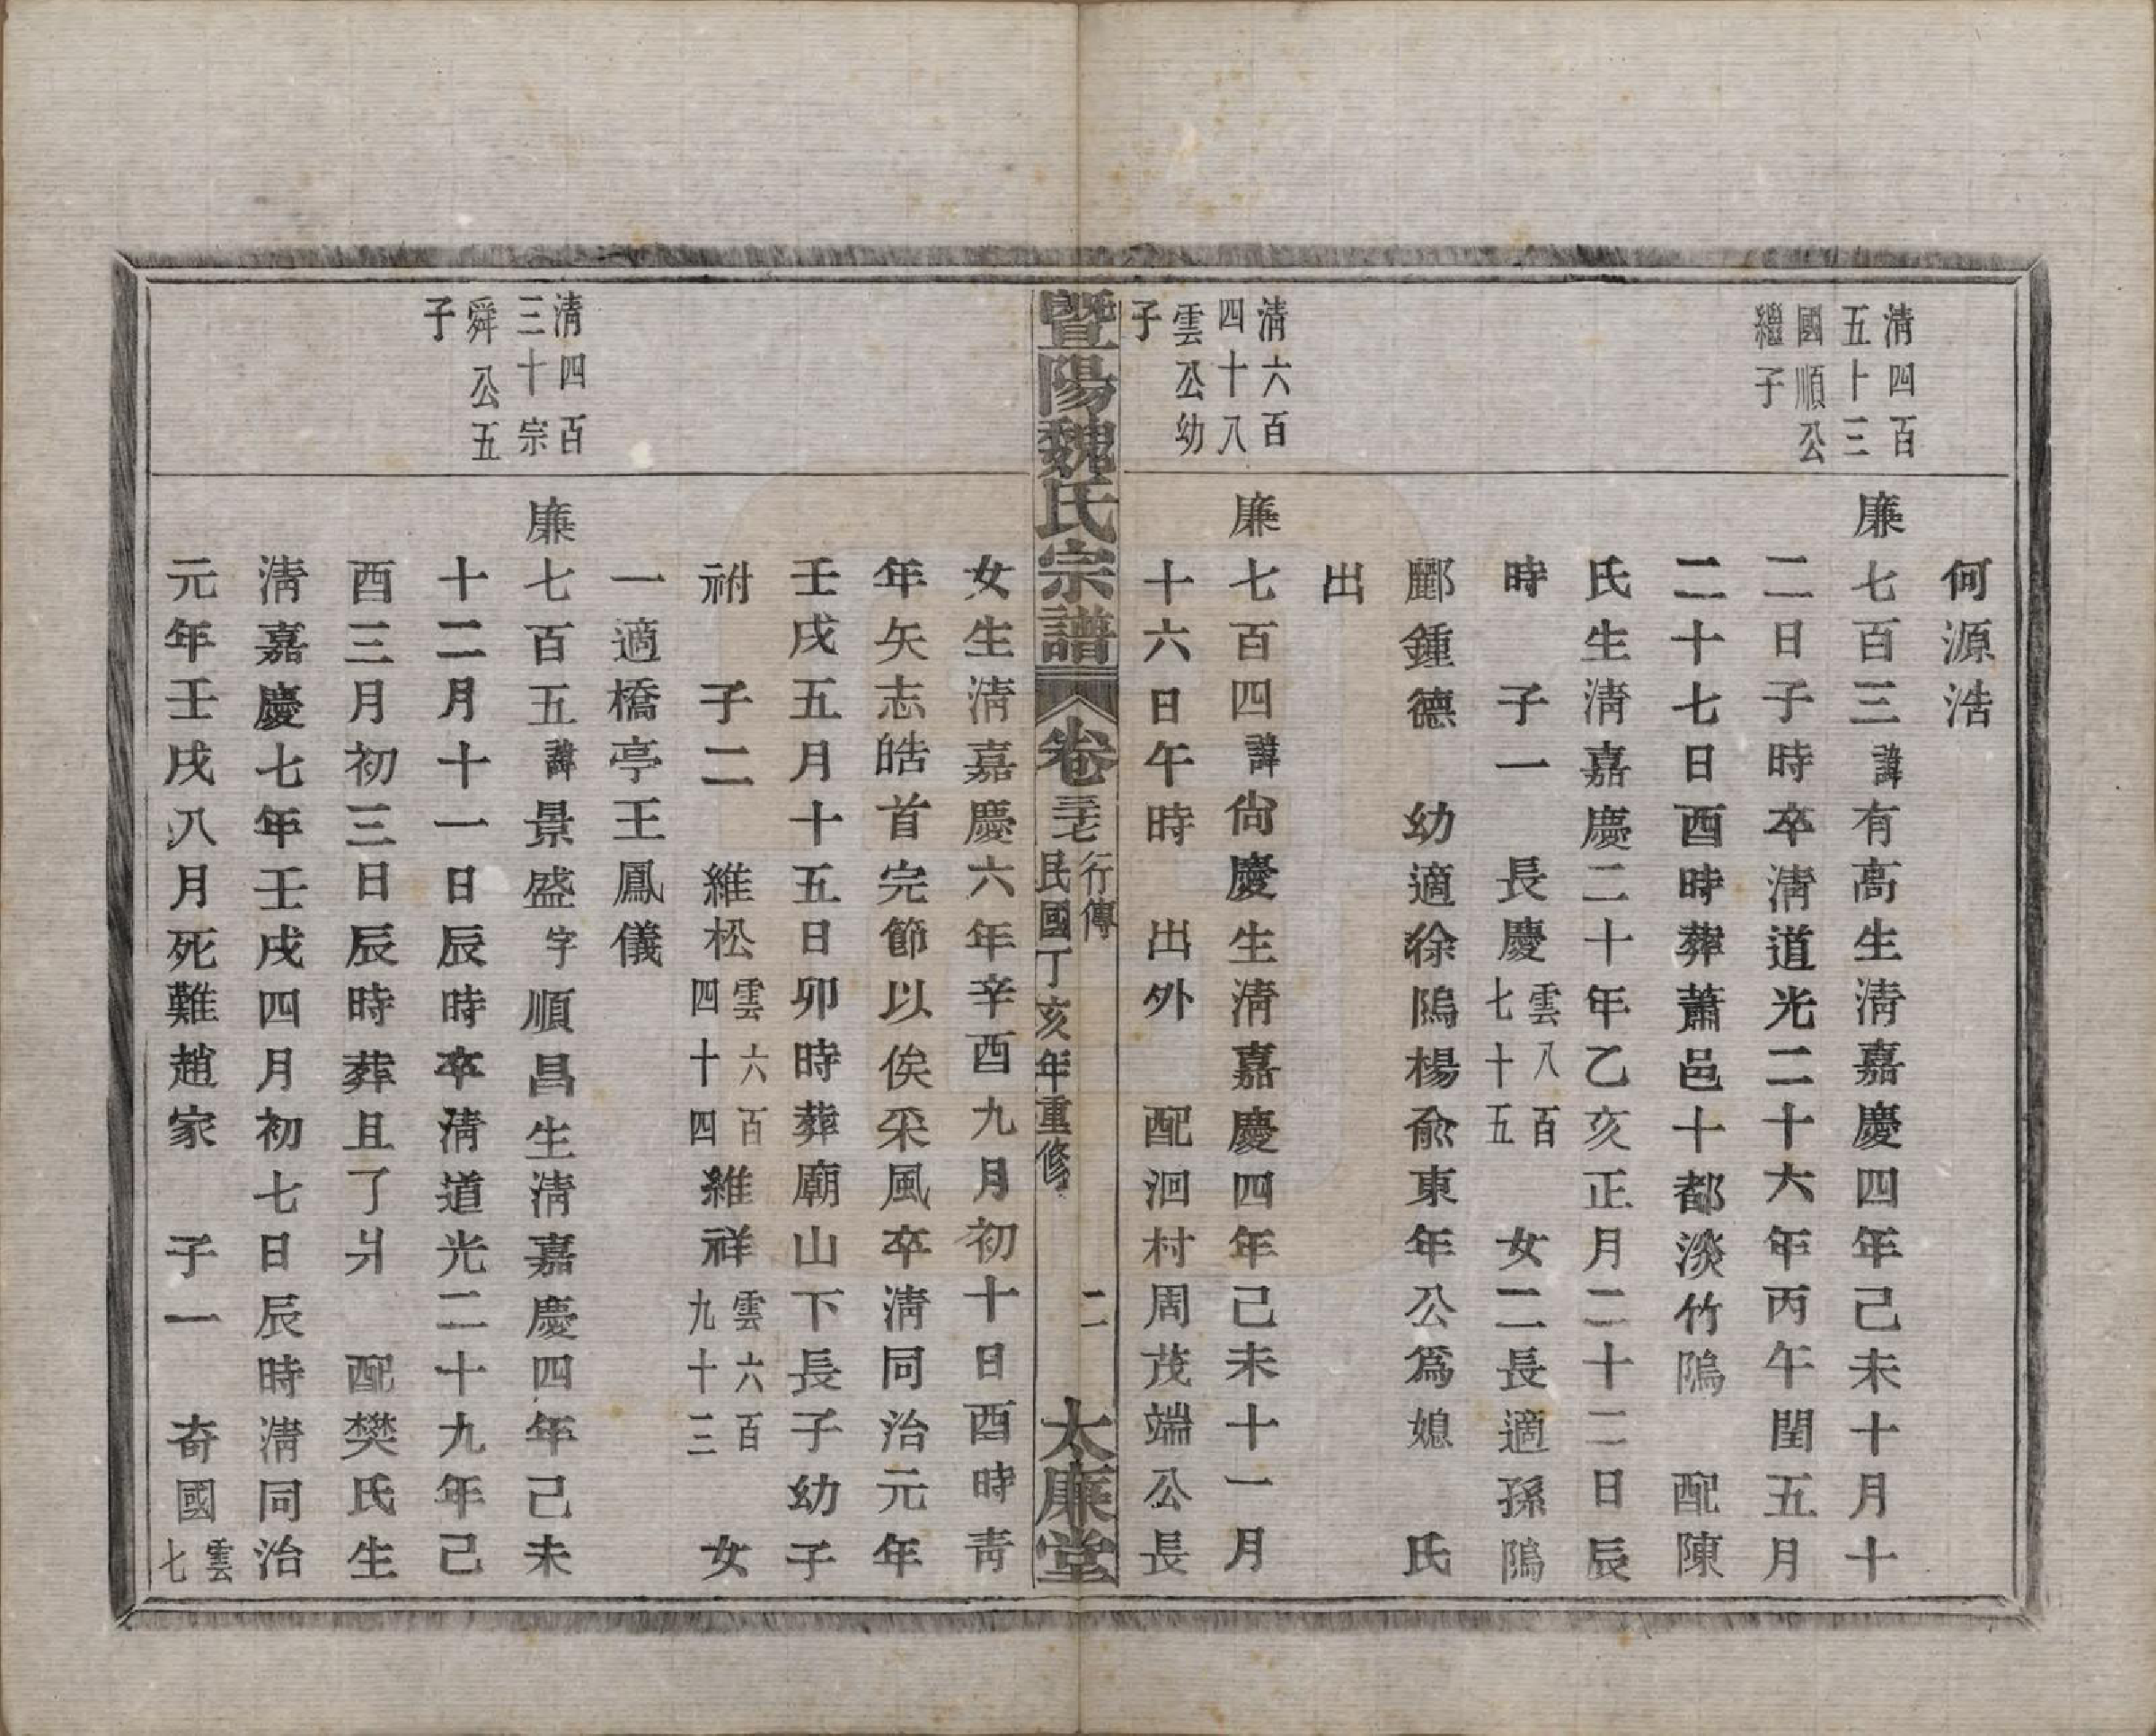 何源浩
清四百
五十三
國順公
繼子
廉七百三諱有高生清嘉慶四年己未十月十
二日子時卒清道光二十六年丙午閏五月
二十七日酉時葬蕭邑十都淡竹隖　配陳
氏生清嘉慶二十年乙亥正月二十二日辰
時　子一　長慶雲八百七十五　女二長適孫隖
酈鍾德　幼適徐隖楊兪東年公爲媳　氏
出
清六百
四十八
雲公幼
子
廉七百四諱尙慶生清嘉慶四年己未十一月
十六日午時　出外　配洄村周茂端公長
暨陽魏氏宗譜　卷三七　行傳　民國丁亥年重修　二　太廉堂
女生清嘉慶六年辛酉九月初十日酉時靑
年矢志皓首完節以俟采風卒清同治元年
壬戌五月十五日卯時葬廟山下長子幼子
祔　子二　維松雲六百四十四維祥雲六百九十三　女
一適橋亭王鳳儀
清四百
三十宗
舜公五
子
廉七百五諱景盛字順昌生清嘉慶四年己未
十二月十一日辰時卒清道光二十九年己
酉三月初三日辰時葬且了爿　配樊氏生
清嘉慶七年壬戌四月初七日辰時清同治
元年壬戌八月死難趙家　子一　奇國雲七